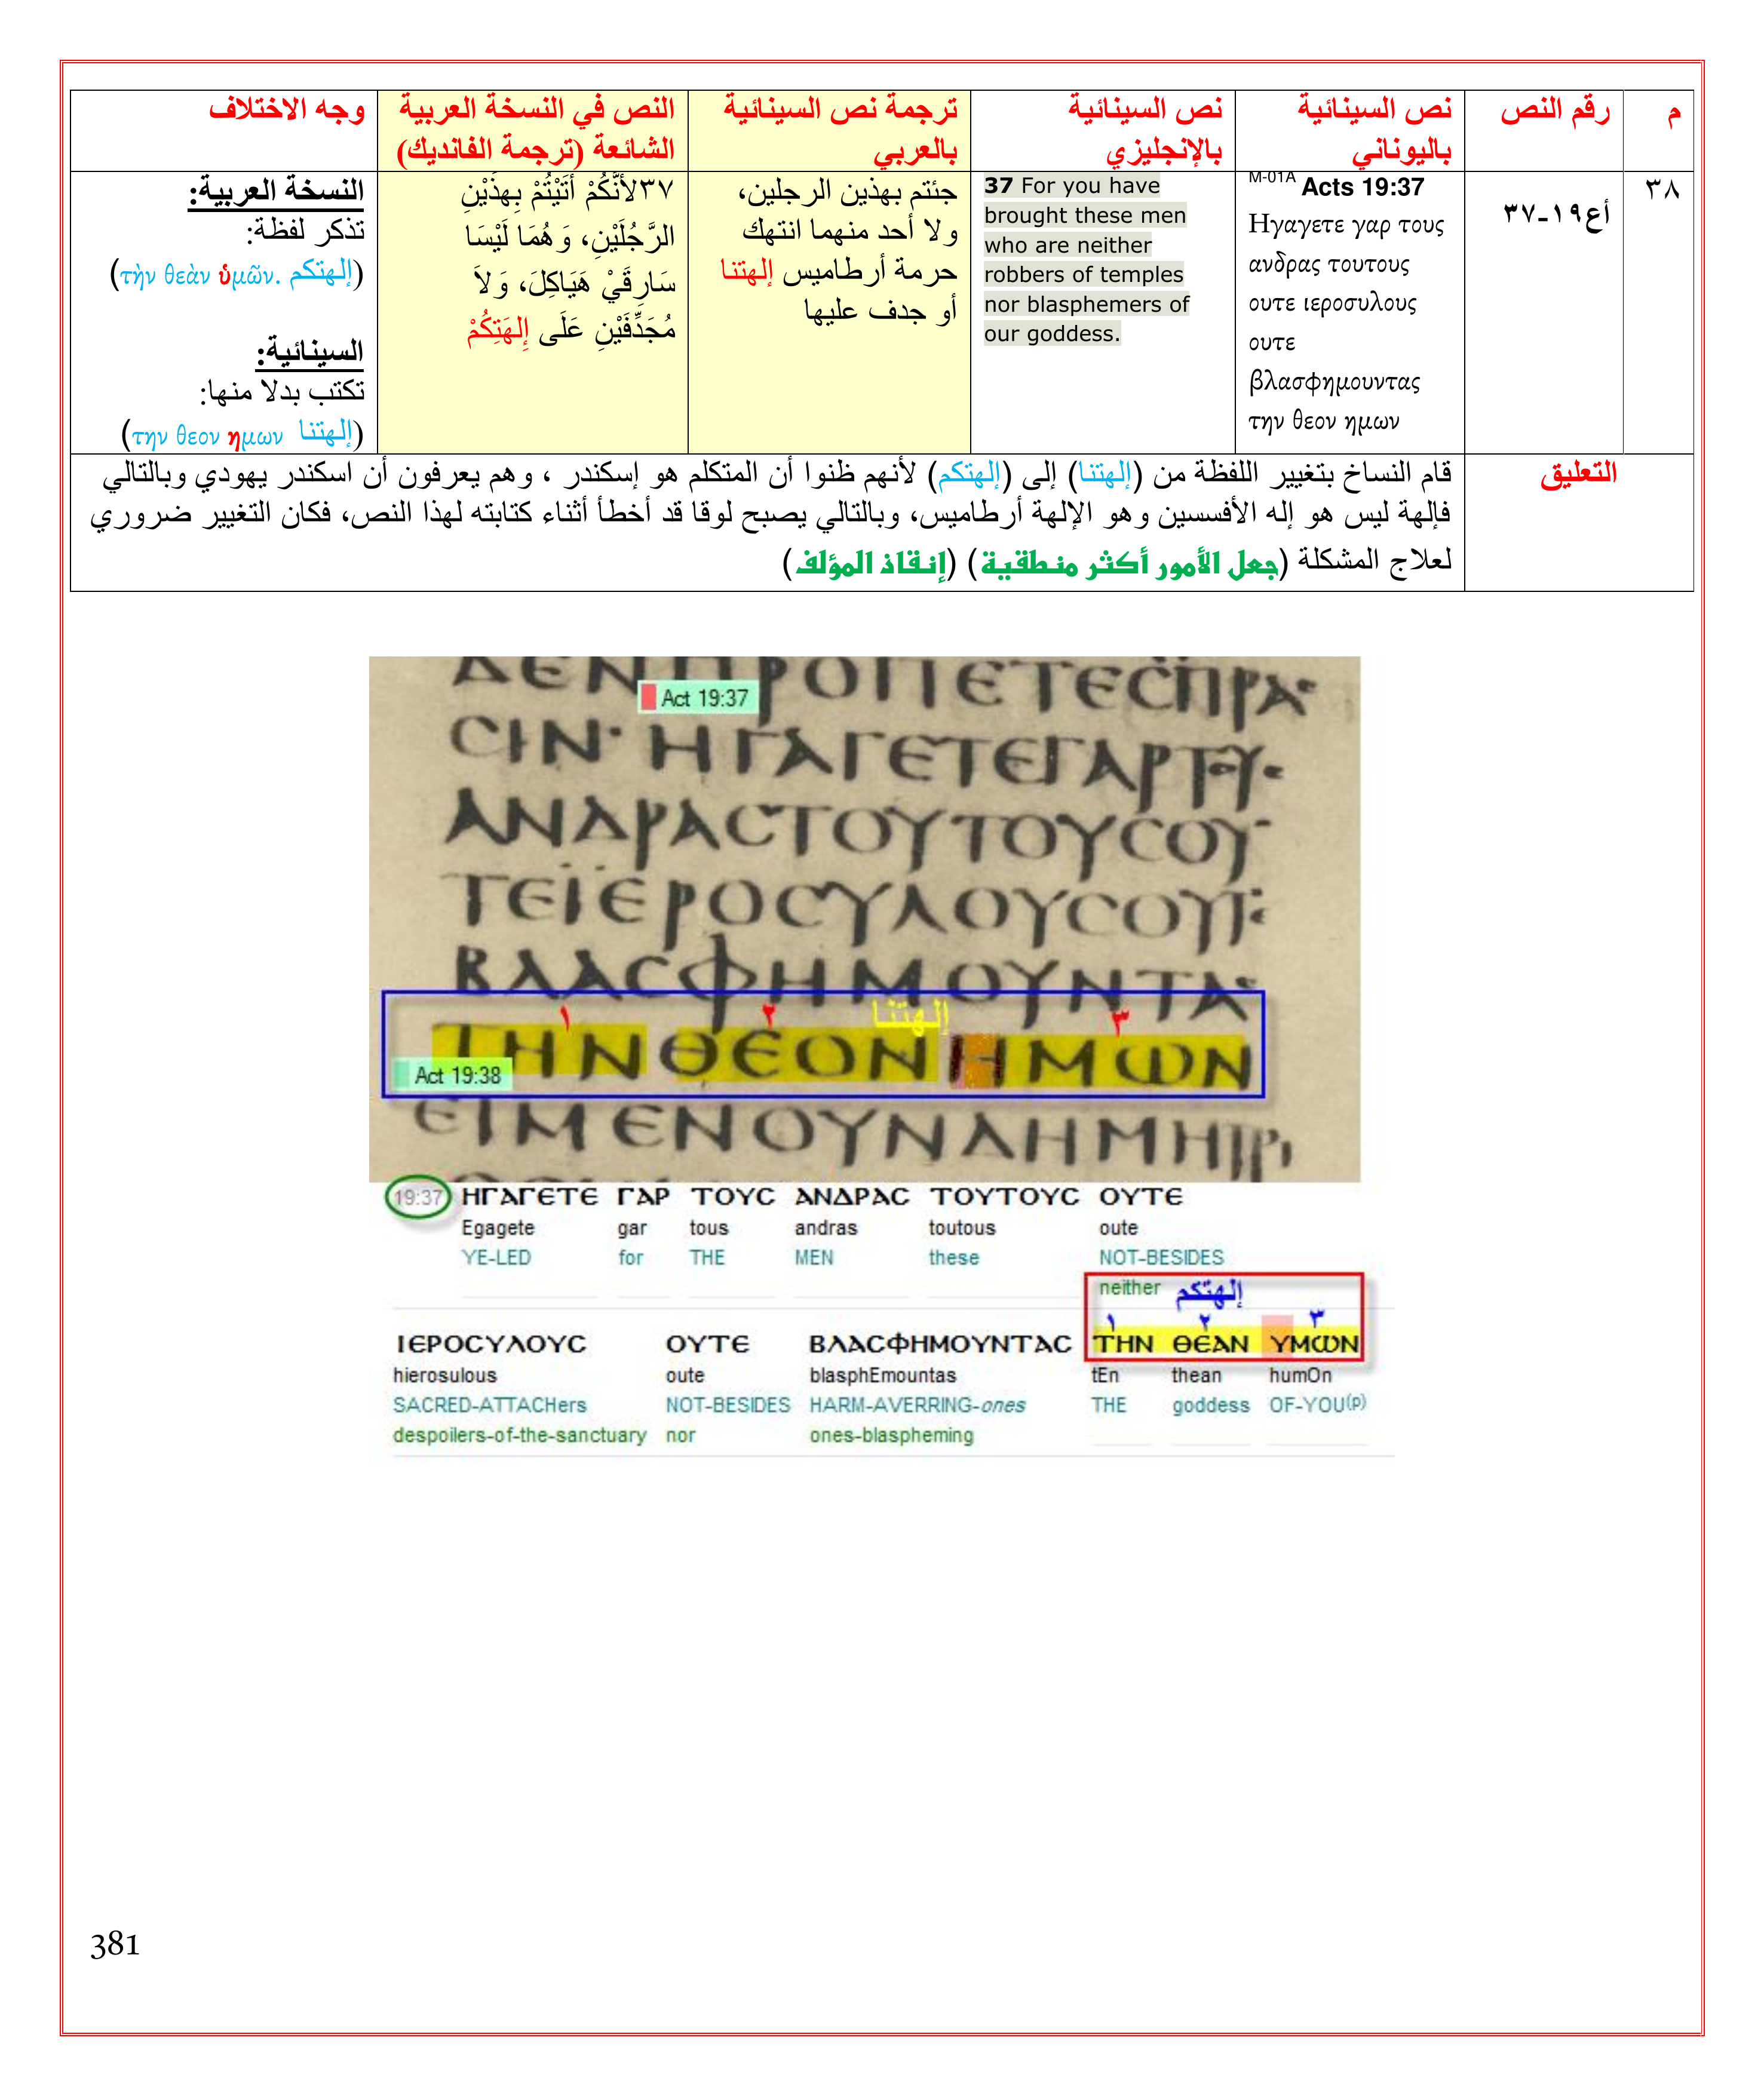 م
رقم النص
نص السينائية
باليوناني
نص السينائية
بالإنجليزي
ترجمة نص السينائية
بالعربي
النص في النسخة العربية
الشائعة (ترجمة الفانديك)
وجه الاختلاف
٣٨
أع١٩-٣٧
M-01A Acts 19:37
Ηγαγετε γαρ τους
ανδρας τουτους
ουτε ιεροσυλους
ουτε
βλασφημουντας
την θεον ημων
37 For you have
brought these men
who are neither
robbers of temples
nor blasphemers of
our goddess.
جئتم بهذين الرجلين،
ولا أحد منهما انتهك
حرمة أرطاميس إلهتنا
أو جدف عليها
٣٧لأَنَّكُمْ أَتَيْتُمْ بِهذَيْنِ
الرَّجُلَيْنِ، وَهُمَا لَيْسَا
سَارِقَيْ هَيَاكِلَ، وَلاَ
مُجَدِّفَيْنِ عَلَى إِلهَتِكُمْ
النسخة العربية:
تذكر لفظة:
(إلهتكم τὴν θεὰν ὑμῶν.)
السينائية:
تكتب بدلا منها:
(إلهتنا την θεον ημων)
التعليق
قام النساخ بتغيير اللفظة من (إلهتنا) إلى (إلهتكم) لأنهم ظنوا أن المتكلم هو إسكندر ، وهم يعرفون أن اسكندر يهودي وبالتالي
فإلهة ليس هو إله الأفسسين وهو الإلهة أرطاميس، وبالتالي يصبح لوقا قد أخطأ أثناء كتابته لهذا النص، فكان التغيير ضروري
لعلاج المشكلة (جعل الأمور أكثر منطقية) (إنقاذ المؤلف)
Act 19:37
ΑΝΔΡΑСΤΟΥΤΟΥСΟΥ
ΤΕΙΕΡΟСΥΛΟΥСΟΥΤΕ
ΒΛΑСΦΗΜΟΥΝΤΑС
١ ٢ إلهتنا ٣
ΤΗΝΘΕΟΝΗΜΩΝ
Act 19:38
ΕΙΜΕΝΟΥΝΔΗΜΗΤΡΙ
19:37 ΗΓΑΓΕΤΕ ΓΑΡ ΤΟΥС ΑΝΔΡΑС ΤΟΥΤΟΥС ΟΥΤΕ
Egagete gar tous andras toutous oute
YE-LED for THE MEN these NOT-BESIDES
neither
إلهتكم
١ ٢ ٣
ΙΕΡΟСΥΛΟΥС ΟΥΤΕ ΒΛΑСΦΗΜΟΥΝΤΑС ΤΗΝ ΘΕΑΝ ΥΜΩΝ
hierosulous oute blasphEmountas tEn thean humOn
SACRED-ATTACHers NOT-BESIDES HARM-AVERRING-ones THE goddess OF-YOU(p)
despoilers-of-the-sanctuary nor ones-blaspheming
381